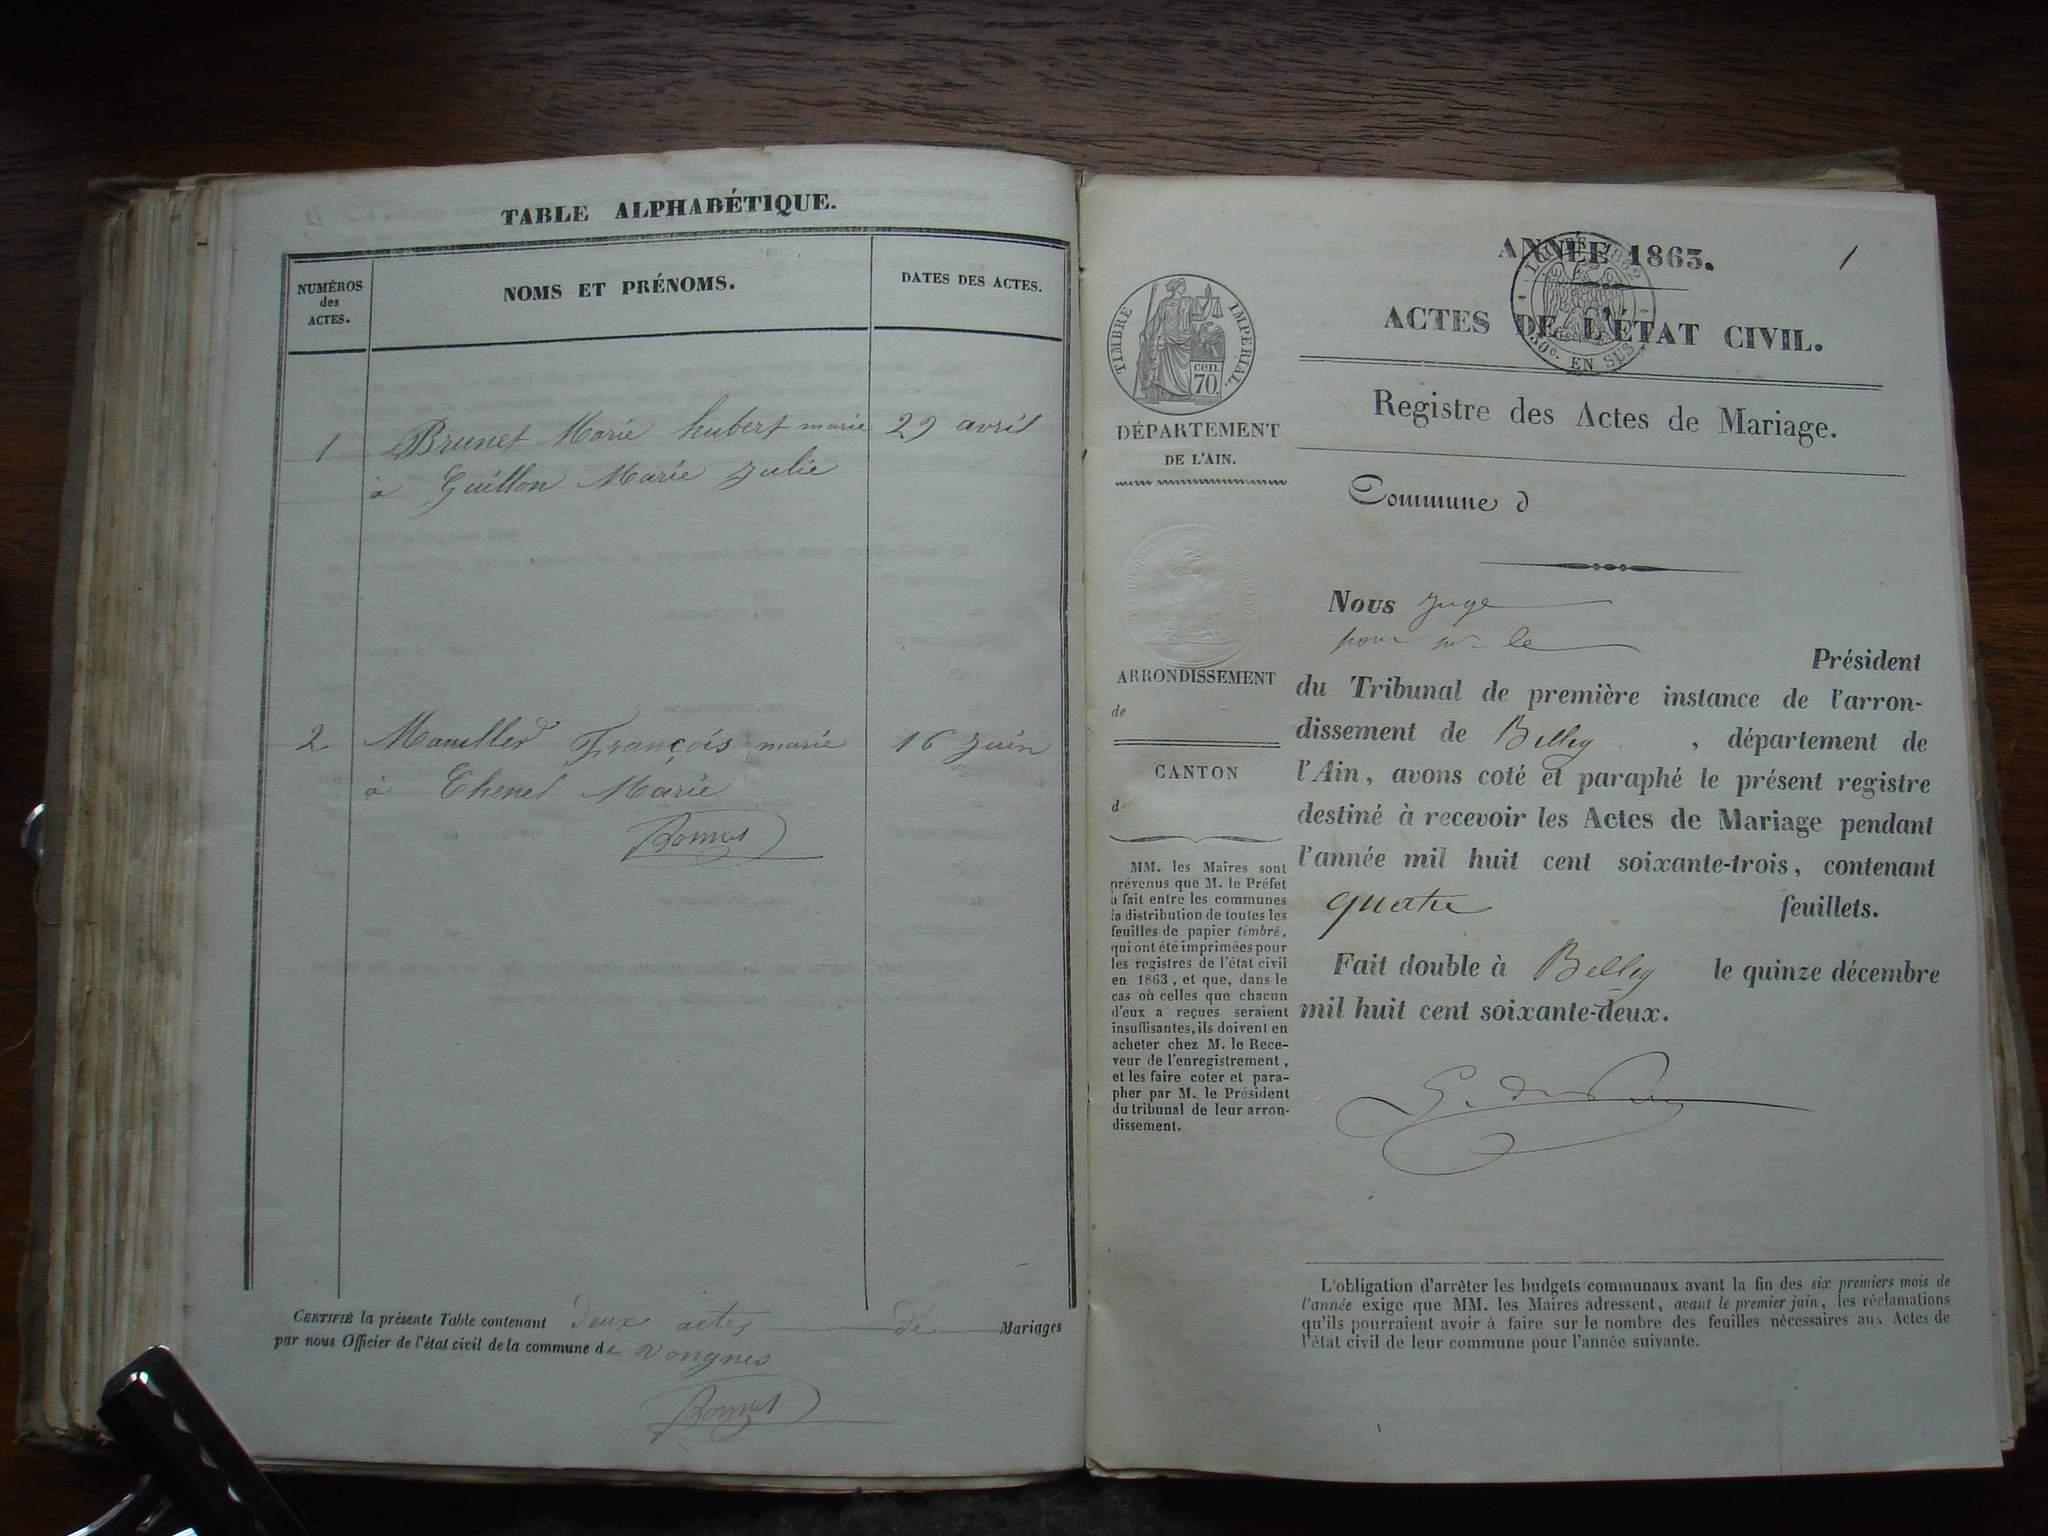 TABLE ALPHABÉTIQUE.
NUMÉROS
des
ACTES.
NOMS ET PRÉNOMS.
DATES DES ACTES.
1 Brunet Marie hubert marie 29 avril
à Guillon Marie Julie
2 François marie 16 Juin
à Marie
CERTIFIÉ la présente Table contenant deux actes de Mariages
par nous Officier de l'état civil de la commune de Vongnes
1
ANNÉE 1863.
ACTES DE L'ÉTAT CIVIL.
50c. EN SUS
Registre des Actes de Mariage.
TIMBRE IMPERIAL.
cen.
70.
DÉPARTEMENT
DE L'AIN.
Commune d
ARRONDISSEMENT
de
CANTON
d
MM. les Maires sont
prévenus que M. le Préfet
a fait entre les communes
la distribution de toutes les
feuilles de papier timbré,
qui ont été imprimées pour
les registres de l'état civil
en 1863, et que, dans le
cas où celles que chacun
d'eux a reçues seraient
insuffisantes, ils doivent en
acheter chez M. le Rece-
veur de l'enregistrement,
et les faire coter et para-
pher par M. le Président
du tribunal de leur arron-
dissement.
Nous Juge
pour le
Président
du Tribunal de première instance de l'arron-
dissement de Belley, département de
l'Ain, avons coté et paraphé le présent registre
destiné à recevoir les Actes de Mariage pendant
l'année mil huit cent soixante-trois, contenant
quatre feuillets.
Fait double à Belley le quinze décembre
mil huit cent soixante-deux.
L'obligation d'arrêter les budgets communaux avant la fin des six premiers mois de
l'année exige que MM. les Maires adressent, avant le premier juin, les réclamations
qu'ils pourraient avoir à faire sur le nombre des feuilles nécessaires aux Actes de
l'état civil de leur commune pour l'année suivante.